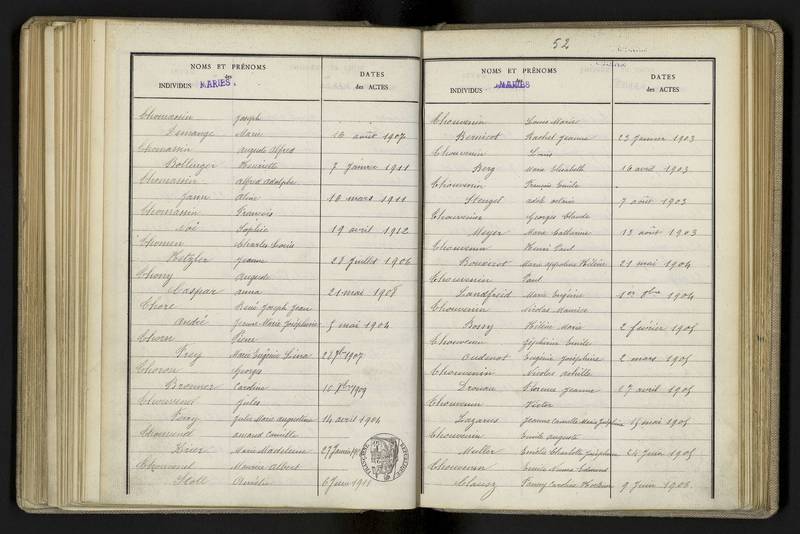 NOMS ET PRÉNOMS
des
INDIVIDUS MARIES.
DATES
des ACTES
Chomassin Joseph
Demange Marie 16 août 1907
Chomassin Auguste Alfred
Bollinger Henriette 7 Janvier 1911
Chomassin Alfred Adolphe
Jann Aline 16 mars 1911
Chomassin Francois
Noé Sophie 19 avril 1912
Chomen Charles Louis
Hetzler Jeanne 28 Juillet 1906
Chony Auguste
Caspar Anna 21 mai 1908
Chore René Joseph Jean
André Jeanne Marie Joséphine 5 mai 1904
Pierre
Frey Marie Eugénie 1907
Choron Georges
Bronner Caroline 1909
Jules
Ferry Julie Marie Augustine 14 avril 1904
Chouvenel Camille
Marie Madeleine 27 Janvier
Chouvenel Maurice Albert
Stoll Amélie 6 Juin 1911
52
NOMS ET PRÉNOMS
des
INDIVIDUS MARIES
DATES
des ACTES
Chouvenin Louis Marie
Bernicot Rachel Jeanne 23 Janvier 1903
Chouvenin Louis
Berg Marie Elisabeth 16 avril 1903
Chouvenin François Emile
Stengel 7 août 1903
Chouvenin Georges Claude
Meyer Marie Catherine 13 août 1903
Chouvenin Henri Paul
Marie Hélène 21 mai 1904
Chouvenin Paul
Landfroid Marie Eugénie 1er 1904
Chouvenin Nicolas Maurice
Bossy Hélène Marie 2 février 1905
Chouvenin Zéphirin Emile
Oudenot Eugénie Joséphine 2 mars 1905
Chouvenin Nicolas Achille
Drouau Florence Jeanne 27 avril 1905
Chouvenin Victor
Lazarus Jeanne Camille Marie Joséphine 15 mai 1905
Chouvenin Emile Auguste
Muller Emélie Charlotte Joséphine 24 Juin 1905
Chouvenin Emile Numa Edmond
Clausz Fanny Caroline 9 Juin 1906